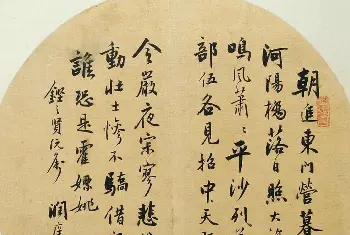 朝進東門營暮
河陽橋落日照大
鳴風蕭〻平沙列
部伍各見招中天
令嚴夜寂寥悲
動壯士慘不驕借
誰恐是霍嫖姚
賢阮屬
潤庠